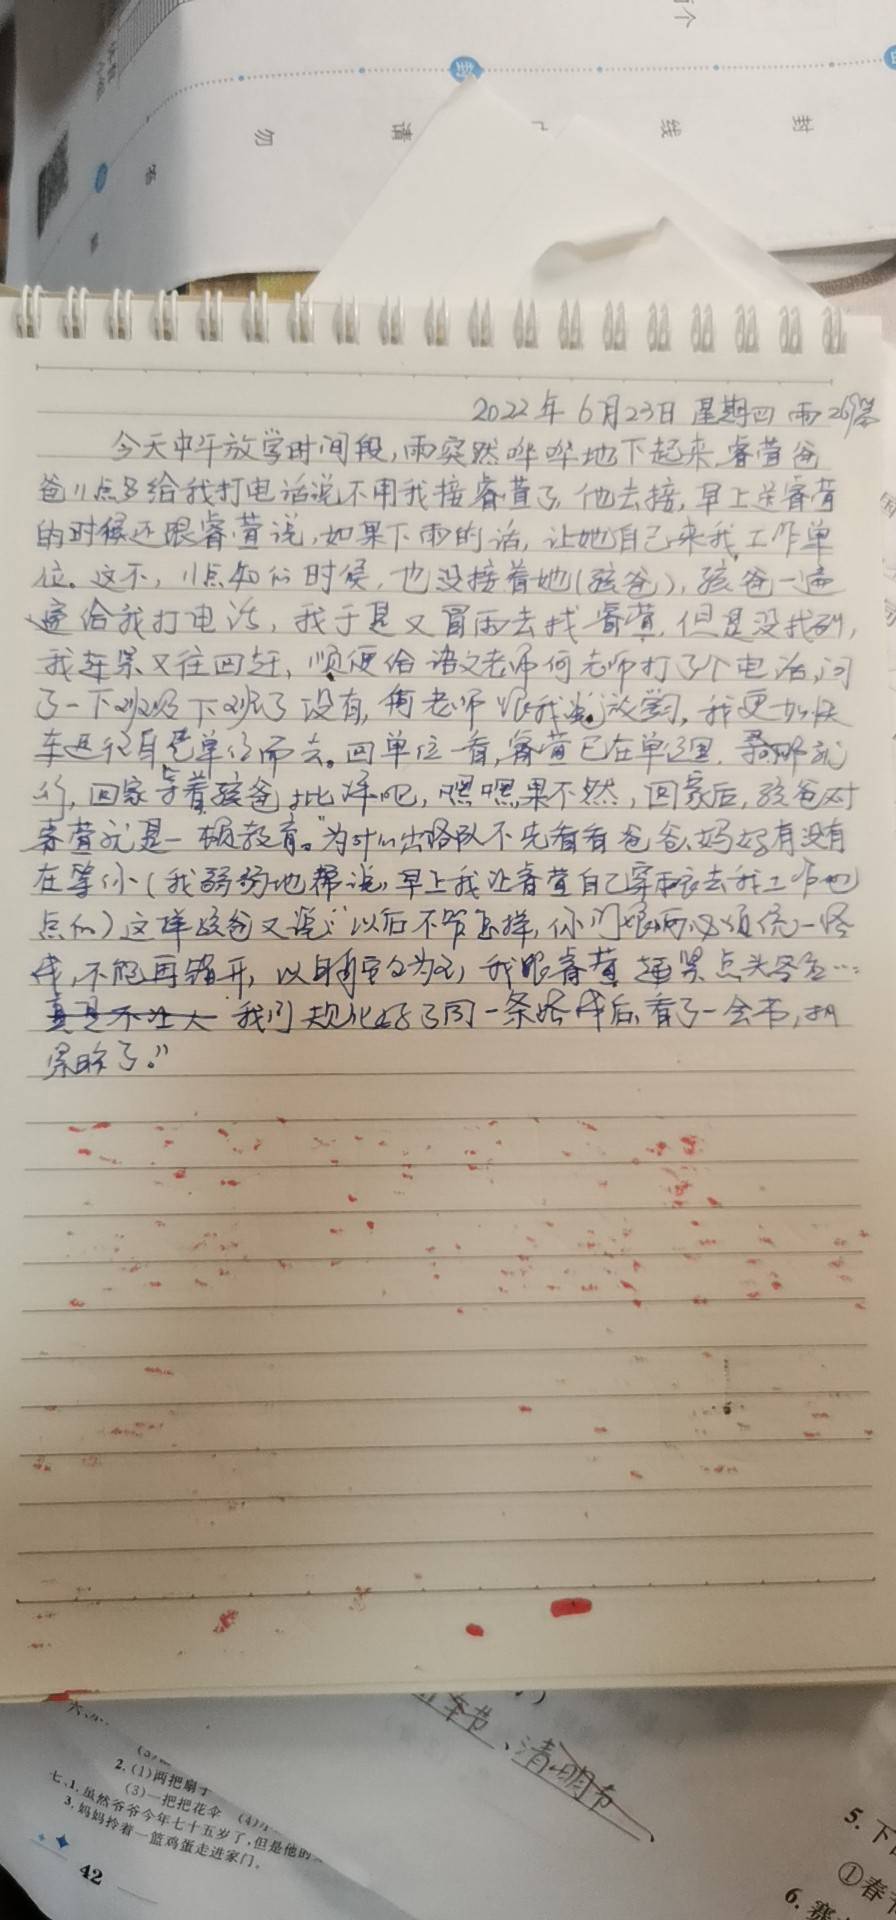 个
封
封
线
请
勿
答
2022年6月23日 星期四 雨
今天中午放学时间段,雨突然哗哗地下起来,睿萱爸
爸11点多给我打电话说不用我接睿萱了,他去接,早上送睿萱
的时候还跟睿萱说,如果下雨的话,让她自己来我工作单
位。这不,11点40的时候,也没接着她(孩爸),孩爸一遍
遍给我打电话,我于是又冒雨去找睿萱,但是没找到,
我赶紧又往回赶,顺便给语文老师何老师打了个电话,问
了一下班级下班了没有,何老师跟我说放学了,我更加快
车速往自己单位而去。回单位一看,睿萱已在单位里,
回家等着孩爸批评吧,嘿嘿,果不然,回家后,孩爸对
睿萱就是一顿教育。"为什么出路队不先看看爸爸、妈妈有没有
在等你(我弱弱地帮说,早上我让睿萱自己穿雨衣去我工作地
点的)这样孩爸又说:"以后不管怎样,你们娘两必须统一路
线,不能再错开,以自身安全为主,我跟睿萱赶紧点头答应…
我们规化好了同一条路线后,看了一会书,就
累睡了。"
清明节
2.(1)两把扇子
(3)一把把花伞 (4)
七、1.虽然爷爷今年七十五岁了,但是他的
3.妈妈拎着一篮鸡蛋走进家门。
42
5.下
①春节
6.赛